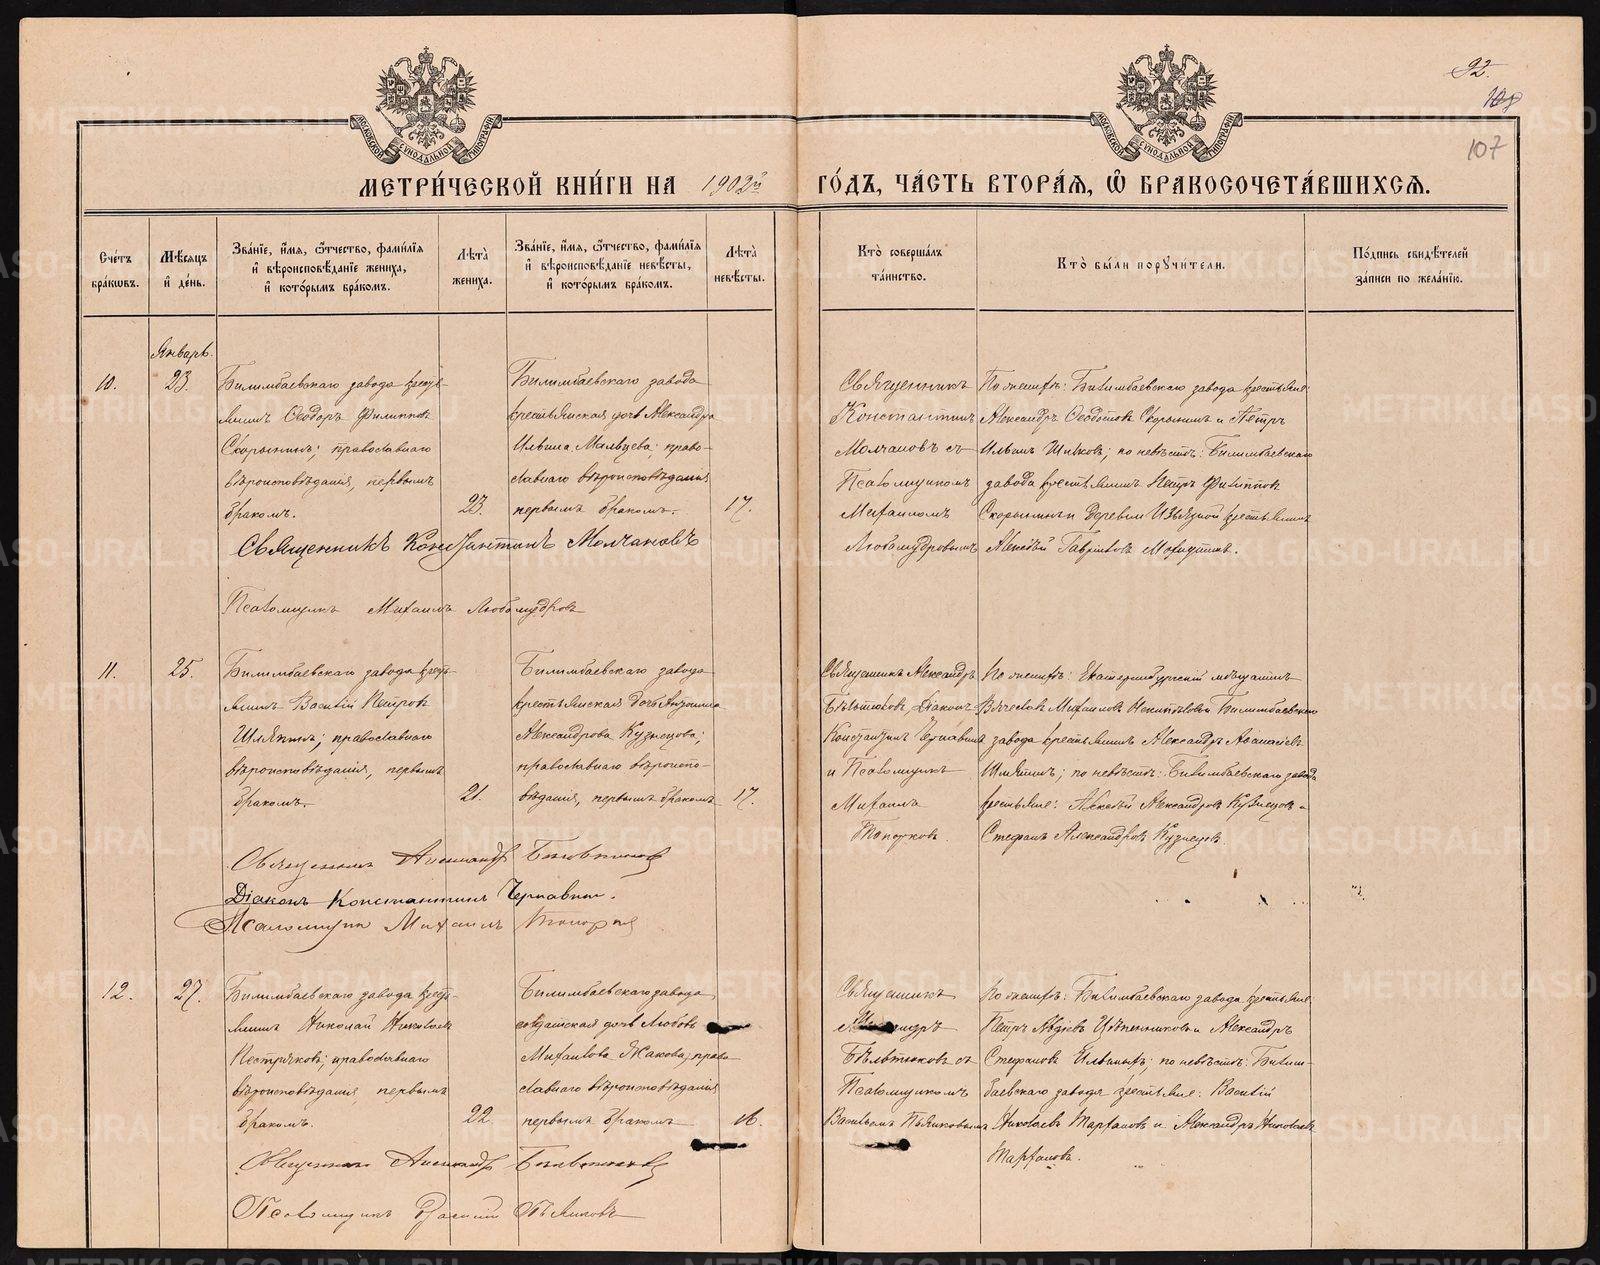 92.
107
МОСКОВСКОЙ СѴНОДАЛЬНОЙ ТИПОГРАФІИ
МОСКОВСКОЙ СѴНОДАЛЬНОЙ ТИПОГРАФІИ
МЕТРИ́ЧЕСКОЙ КНИ́ГИ НА 1902й ГО́ДЪ, ЧА́СТЬ ВТОРА́Ѧ, Ѽ БРАКОСОЧЕТА́ВШИХСѦ.
Сче́тъ бра́кѡвъ.
Мѣ́сѧцъ и҆ де́нь.
Зва́нїе, и҆́мѧ, ѻ҆́тчество, фамѝлїѧ и҆ вѣроисповѣ́данїе жениха̀, и҆ кото́рымъ бра́комъ.
Лѣ́та жениха̀.
Зва́нїе, и҆́мѧ, ѻ҆́тчество, фамѝлїѧ и҆ вѣроисповѣ́данїе невѣ́сты, и҆ кото́рымъ бра́комъ.
Лѣ́та невѣ́сты.
Кто̀ соверша́лъ та́инство.
Кто̀ бы́ли порꙋчи́тели.
По́дпись свидѣ́телей за́писи по жела́нїю.
Январь.
10.
23.
Билимбаевскаго завода кресть-
янинъ Ѳеодоръ Филиппов
Скорынинъ; православнаго
вѣроисповѣданія, первымъ
бракомъ.
23.
Билимбаевскаго завода
крестьянская дочь Александра
Ильина Мальцева; право-
славнаго вѣроисповѣданія
первымъ бракомъ.
17.
Священникъ
Константинъ
Молчановъ съ
Псаломщикомъ
Михаиломъ
Любомудровымъ
По женихѣ: Билимбаевскаго завода крестьяне:
Александръ Ѳеодотов Скорынинъ и Петръ
Ильинъ; по невѣстѣ: Билимбаевскаго
завода крестьянинъ Петръ Филиппов
Скорынинъ и деревни крестьянинъ
Алексѣй Гаврилов
Священникъ Константинъ Молчановъ
Псаломщикъ Михаилъ Любомудровъ
11.
25.
Билимбаевскаго завода кресть-
янинъ Василій Петров
Шляпинъ; православнаго
вѣроисповѣданія, первымъ
бракомъ.
21.
Билимбаевскаго завода
крестьянская дочь
Александрова Кузнецова;
православнаго вѣроиспо-
вѣданія, первымъ бракомъ
17.
Священникъ Александръ
Бѣльтюков, Діаконъ
Константинъ Чернавинъ
и Псаломщикъ
Михаилъ
Топорков.
По женихѣ: Екатеринбургскій мѣщанинъ
Вячеслав Михаилов и Билимбаевскаго
завода крестьянинъ Александръ Аѳанасіев
Шляпинъ; по невѣстѣ: Билимбаевскаго завода
крестьяне: Алексѣй Александров Кузнецов и
Стефанъ Александров Кузнецов.
Священникъ Александръ Бѣльтюковъ
Діаконъ Константинъ Чернавинъ.
Псаломщикъ Михаилъ Топорков
12.
27.
Билимбаевскаго завода кресть-
янинъ Николай Николаев
Пестряков; православнаго
вѣроисповѣданія, первымъ
бракомъ.
22.
Билимбаевскаго завода
солдатская дочь Любовь
Михаилова; право-
славнаго вѣроисповѣданія
первымъ бракомъ
16.
Священникъ
Александръ
Бѣльтюковъ съ
Псаломщикомъ
Василіемъ Пьянковымъ
По женихѣ: Билимбаевскаго завода крестьяне:
Петръ Авдіев и Александръ
Стефанов; по невѣстѣ: Билим-
баевскаго завода крестьяне: Василій
Николаев Тарханов и Александръ Николаев
Тарханов.
Священникъ Александръ Бѣльтюковъ
Псаломщикъ Василій Пьянковъ